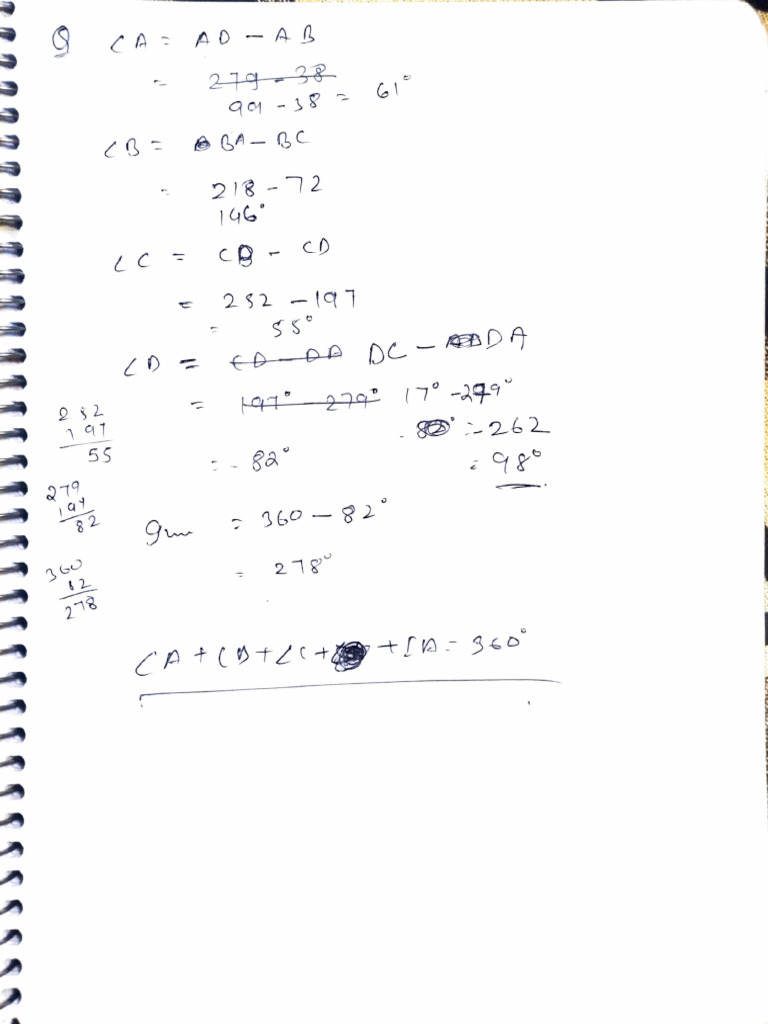 Q ∠A = AD - AB
= 279 - 38
99 - 38 = 61°
∠B = BA - BC
= 218 - 72
146°
∠C = CB - CD
= 252 - 197
= 55°
∠D = CD - DA DC - DA
= 197° - 279° 17° - 279°
= - 82° = - 262
= 98°
252
197
55
279
197
82
= 360 - 82°
= 278°
360
82
278
∠A + ∠B + ∠C + + ∠D = 360°